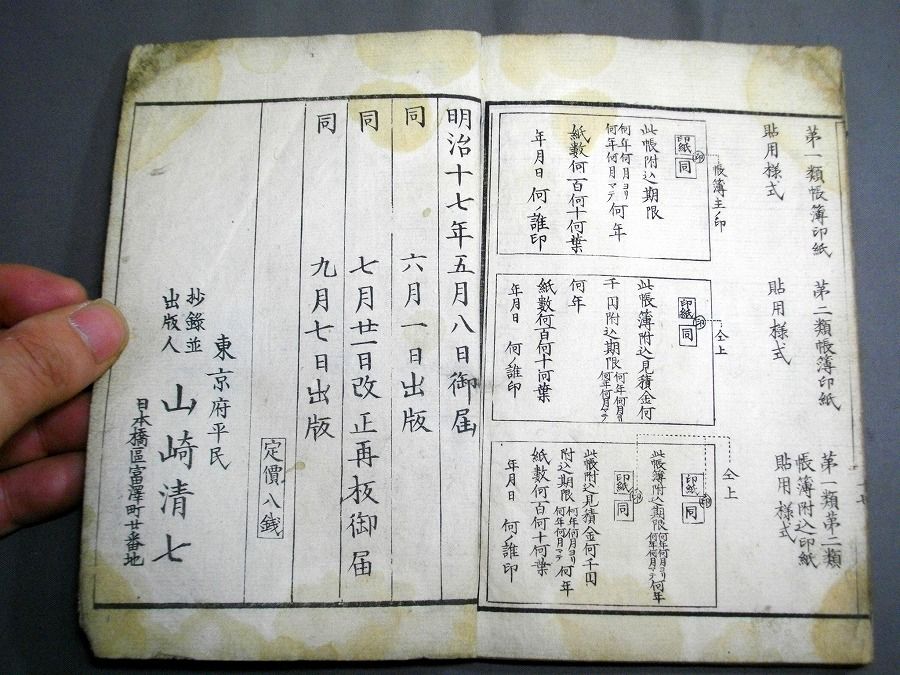 第一類帳簿印紙
貼用様式
帳簿主ノ印
印紙
同
印
此帳附込期限
何年何月ヨリ
何年何月マテ
何年
紙數何百何十何葉
年月日 何ノ誰印
第二類帳簿印紙
貼用様式
仝上
印紙
同
印
此帳簿附込見積金何
千円附込期限
何年何月ヨリ
何年何月マテ
何年
紙數何百何十何葉
年月日 何ノ誰印
第一類第二類
帳簿附込印紙
貼用様式
仝上
印紙
同
印
此帳簿附込期限
何年何月ヨリ
何年何月マテ
何年
印紙
同
印
此帳附込見積金何千円
附込期限
何年何月ヨリ
何年何月マテ
何年
紙數何百何十何葉
年月日 何ノ誰印
明治十七年五月八日御届
同 六月一日出版
同 七月廿一日改正再板御届
同 九月七日出版
定價八銭
東京府平民
抄錄並
出版人
山崎清七
日本橋區富澤町廿番地